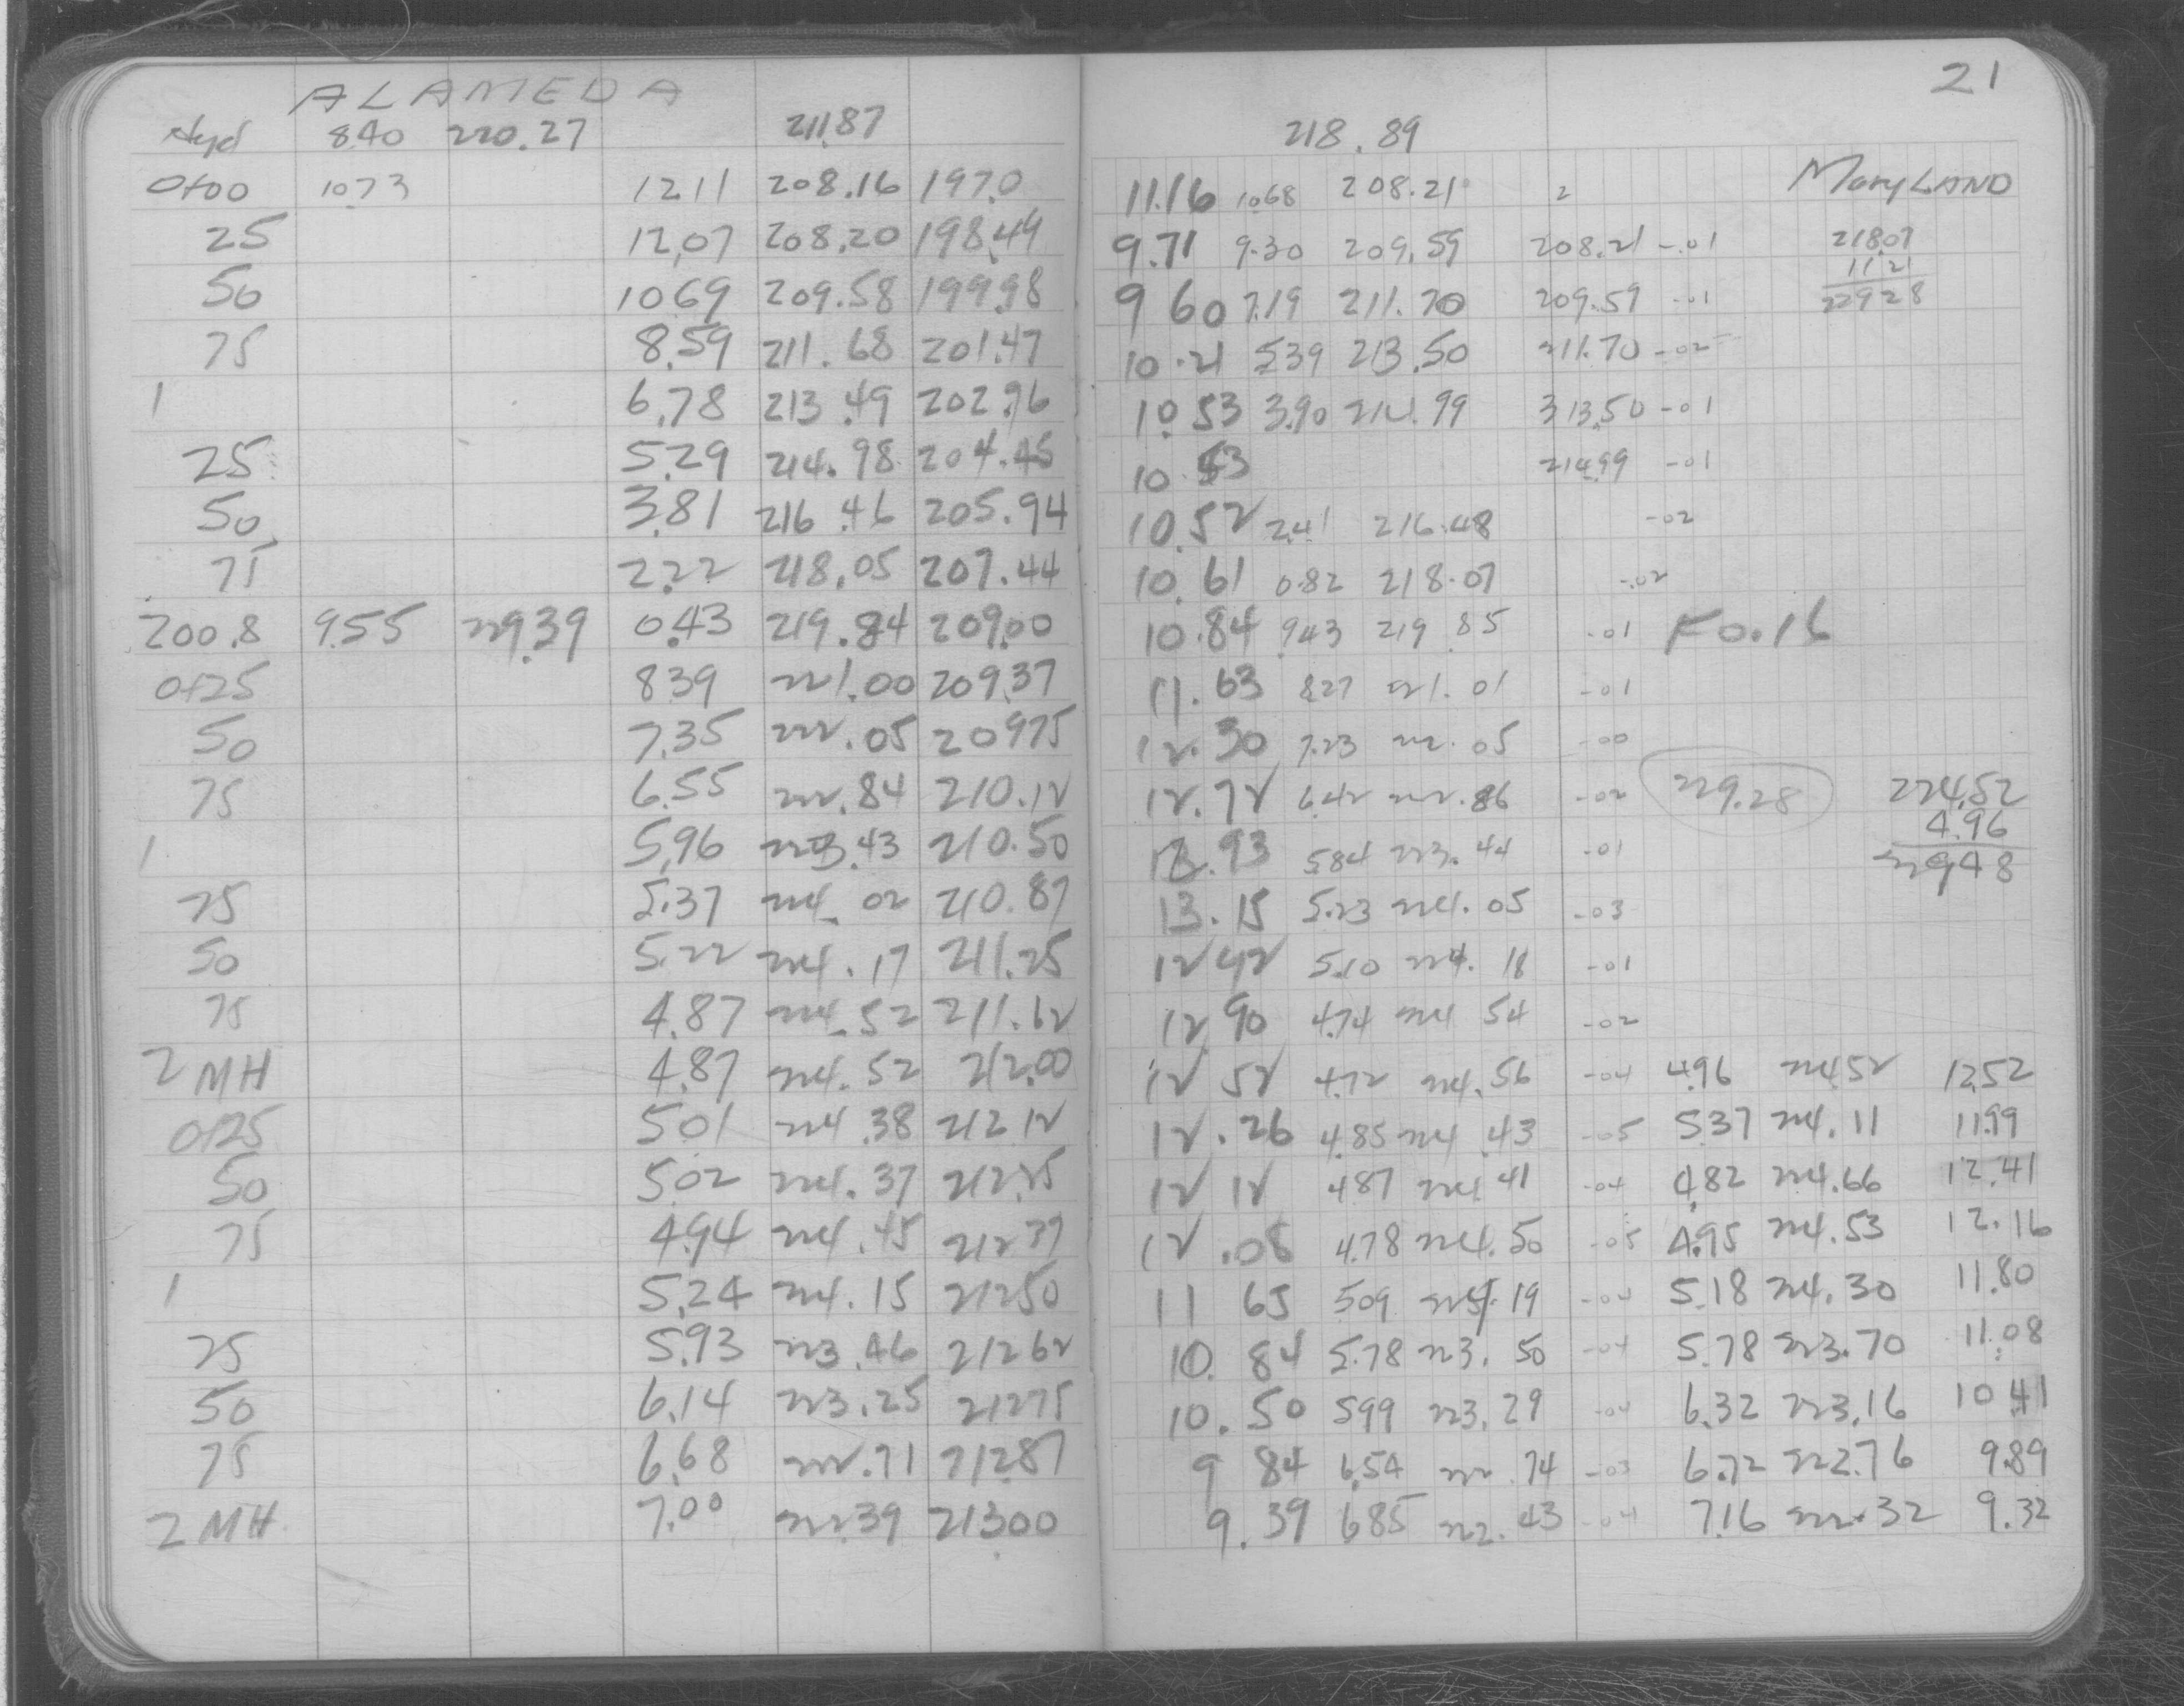 21
ALAMEDA
Hyd 8.40 220.27 211.87 218.89
0+00 10.73 12.11 208.16 197.0 11.16 10.68 208.21 2 MaryLAND
25 12.07 208.20 198.49 9.71 9.30 209.59 208.21 -.01 218.07
50 10.69 209.58 199.98 9 60 7.19 211.70 209.59 -.01 11.21
229 28
75 8.59 211.68 201.47 10.21 5.39 213.50 211.70 -.02
1 6.78 213.49 202.96 10.53 3.90 214.99 313.50 -.01
25 5.29 214.98 204.45 10.53 214.99 -.01
50 3.81 216.46 205.94 10.52 2.41 216.48 -.02
75 2.22 218.05 207.44 10.61 0.82 218.07 -.02
200.8 9.55 229.39 0.43 219.84 209.00 10.84 9.43 219 85 -.01 F0.16
0+25 8.39 221.00 209.37 11.63 8.27 221.01 -.01
50 7.35 222.05 209.75 12.30 7.23 222.05 -.00
75 6.55 222.84 210.12 12.72 6.42 222.86 -.02 229.28 224.52
4.96
1 5.96 223.43 210.50 12.93 5.84 223.44 -.01 229 48
25 5.37 224.02 210.87 13.15 5.23 224.05 -.03
50 5.22 224.17 211.25 12 42 5.10 224.18 -.01
75 4.87 224.52 211.62 12 90 4.74 224 54 -.02
2 MH 4.87 224.52 212.00 12 52 4.72 224.56 -.04 4.96 224.52 12.52
0+25 5.01 224.38 212 12 12.26 4.85 224.43 -.05 5.37 224.11 11.99
50 5.02 224.37 212.25 12 12 4.87 224 41 -.04 4.82 224.66 12.41
75 4.94 224.45 212 37 12.08 4.78 224.50 -.05 4.95 224.53 12.16
1 5.24 224.15 212.50 11 65 5.09 224.19 -.04 5.18 224.30 11.80
25 5.93 223.46 212 62 10.84 5.78 223.50 -.04 5.78 223.70 11.08
50 6.14 223.25 212.75 10.50 5.99 223.29 -.04 6.32 223.16 10.41
75 6.68 222.71 212.87 9 84 6.54 222.74 -.03 6.72 222.76 9.89
2 MH 7.00 222.39 213.00 9.39 6.85 222.43 -.04 7.16 222.32 9.32